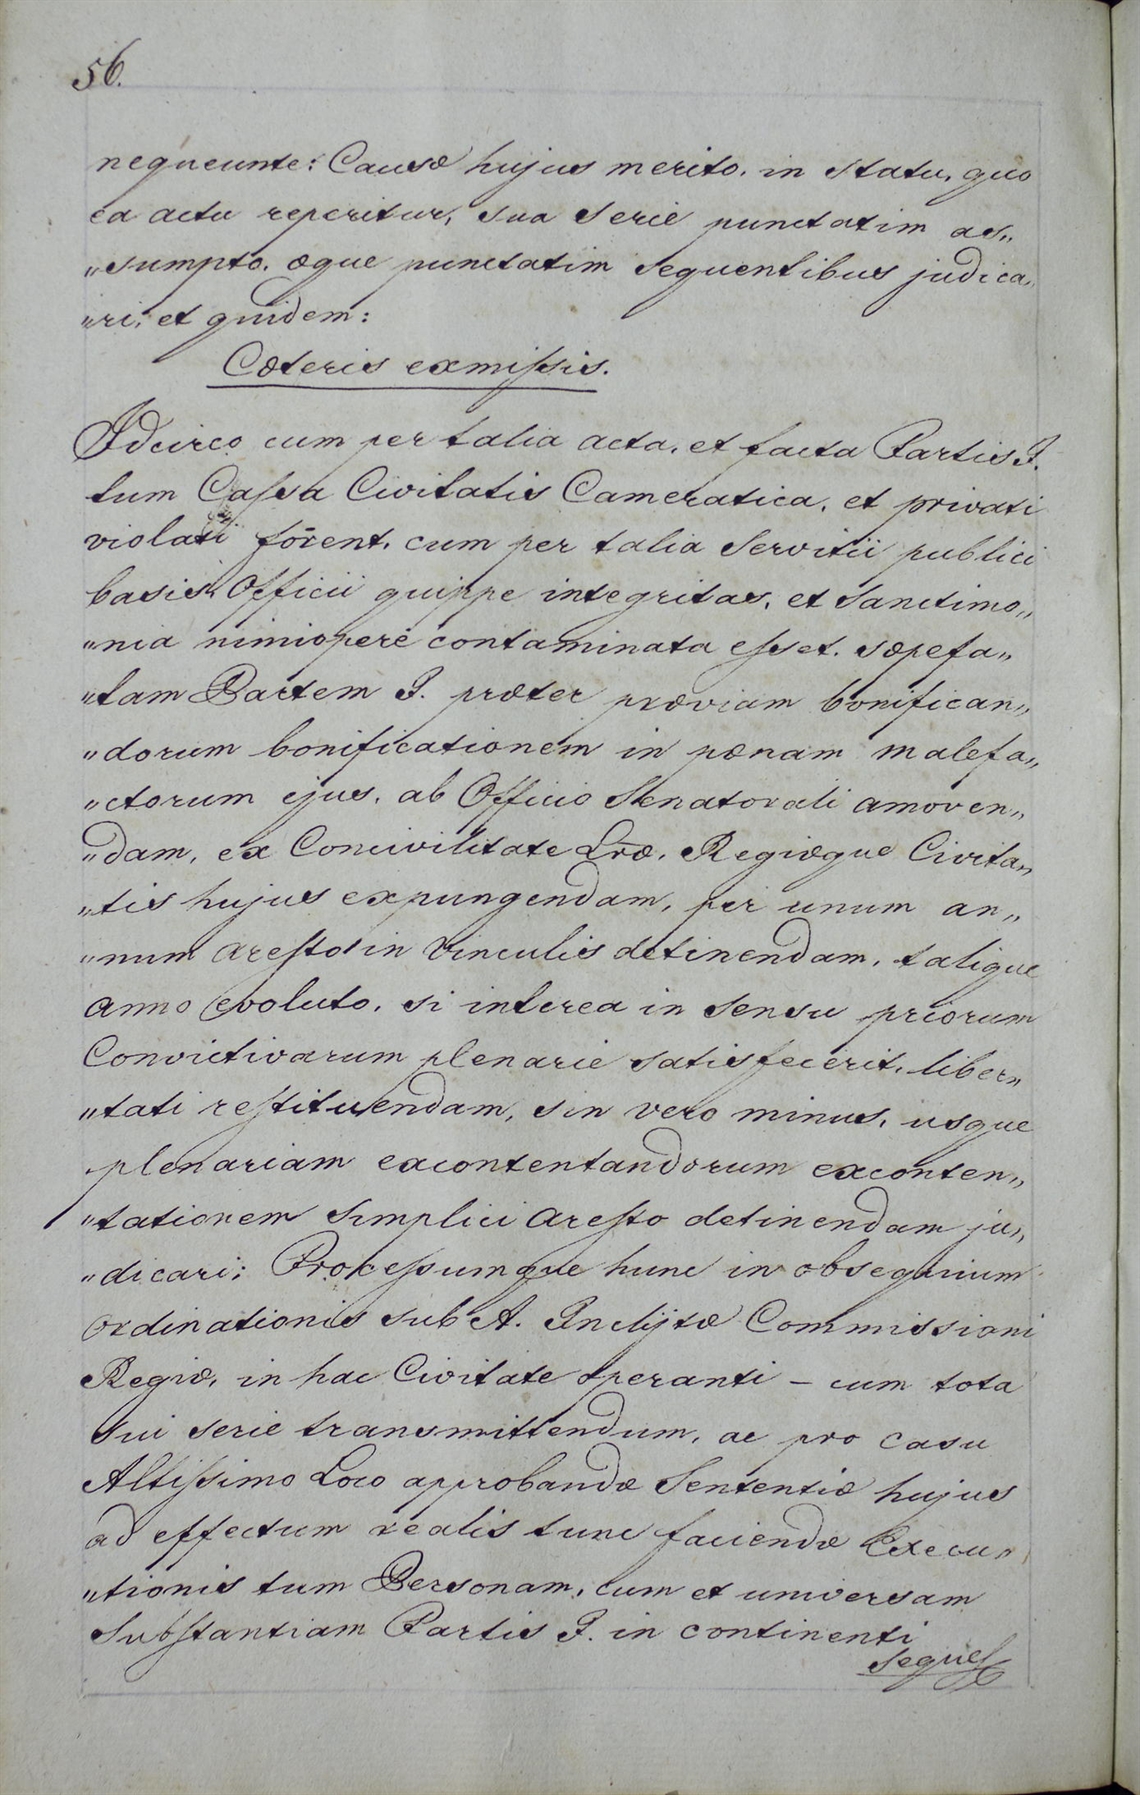 56.
nequeunte: Causæ hujus merito, in statu, quo
ea actu reperitur, sua serie punctatim as„
„sumpto, æque punctatim sequentibus judica„
„ri, et quidem:
Cæteris exmissis.
Idcirco cum per talia acta, et facta Partis I.
tum Cassa Civitatis Cameratica, et privati
violati forent, cum per talia Servitii publici
basis, Officii quippe integritas, et Sanctimo„
„nia nimiopere contaminata esset. sæpefa„
„tam Partem I. præter præviam bonifican„
„dorum bonificationem in pœnam malefa„
„ctorum ejus, ab Officio Senatorali amoven„
„dam, ex Concivilitate Lræ, Regiæque Civita„
„tis hujus expungendam, per unum an„
„num aresto in Vinculis detinendam, talique
anno evoluto, si interea in Sensu priorum
Convictivarum plenarie satisfecerit, liber„
„tati restituendam, sin vero minus, usque
plenariam excontentandorum exconten„
„tationem Simplici aresto detinendam ju„
„dicari; Processumque hunc in obsequium
Ordinationis sub A. Inclytæ Commissioni
Regiæ, in hac Civitate operanti – cum tota
sui serie transmittendum, ac pro casu
Altissimo Loco approbandæ Sententiæ hujus
ad effectum realis tunc faciendæ Execu„
„tionis tum Personam, cum et universam
Substantiam Partis I. in continenti
seques